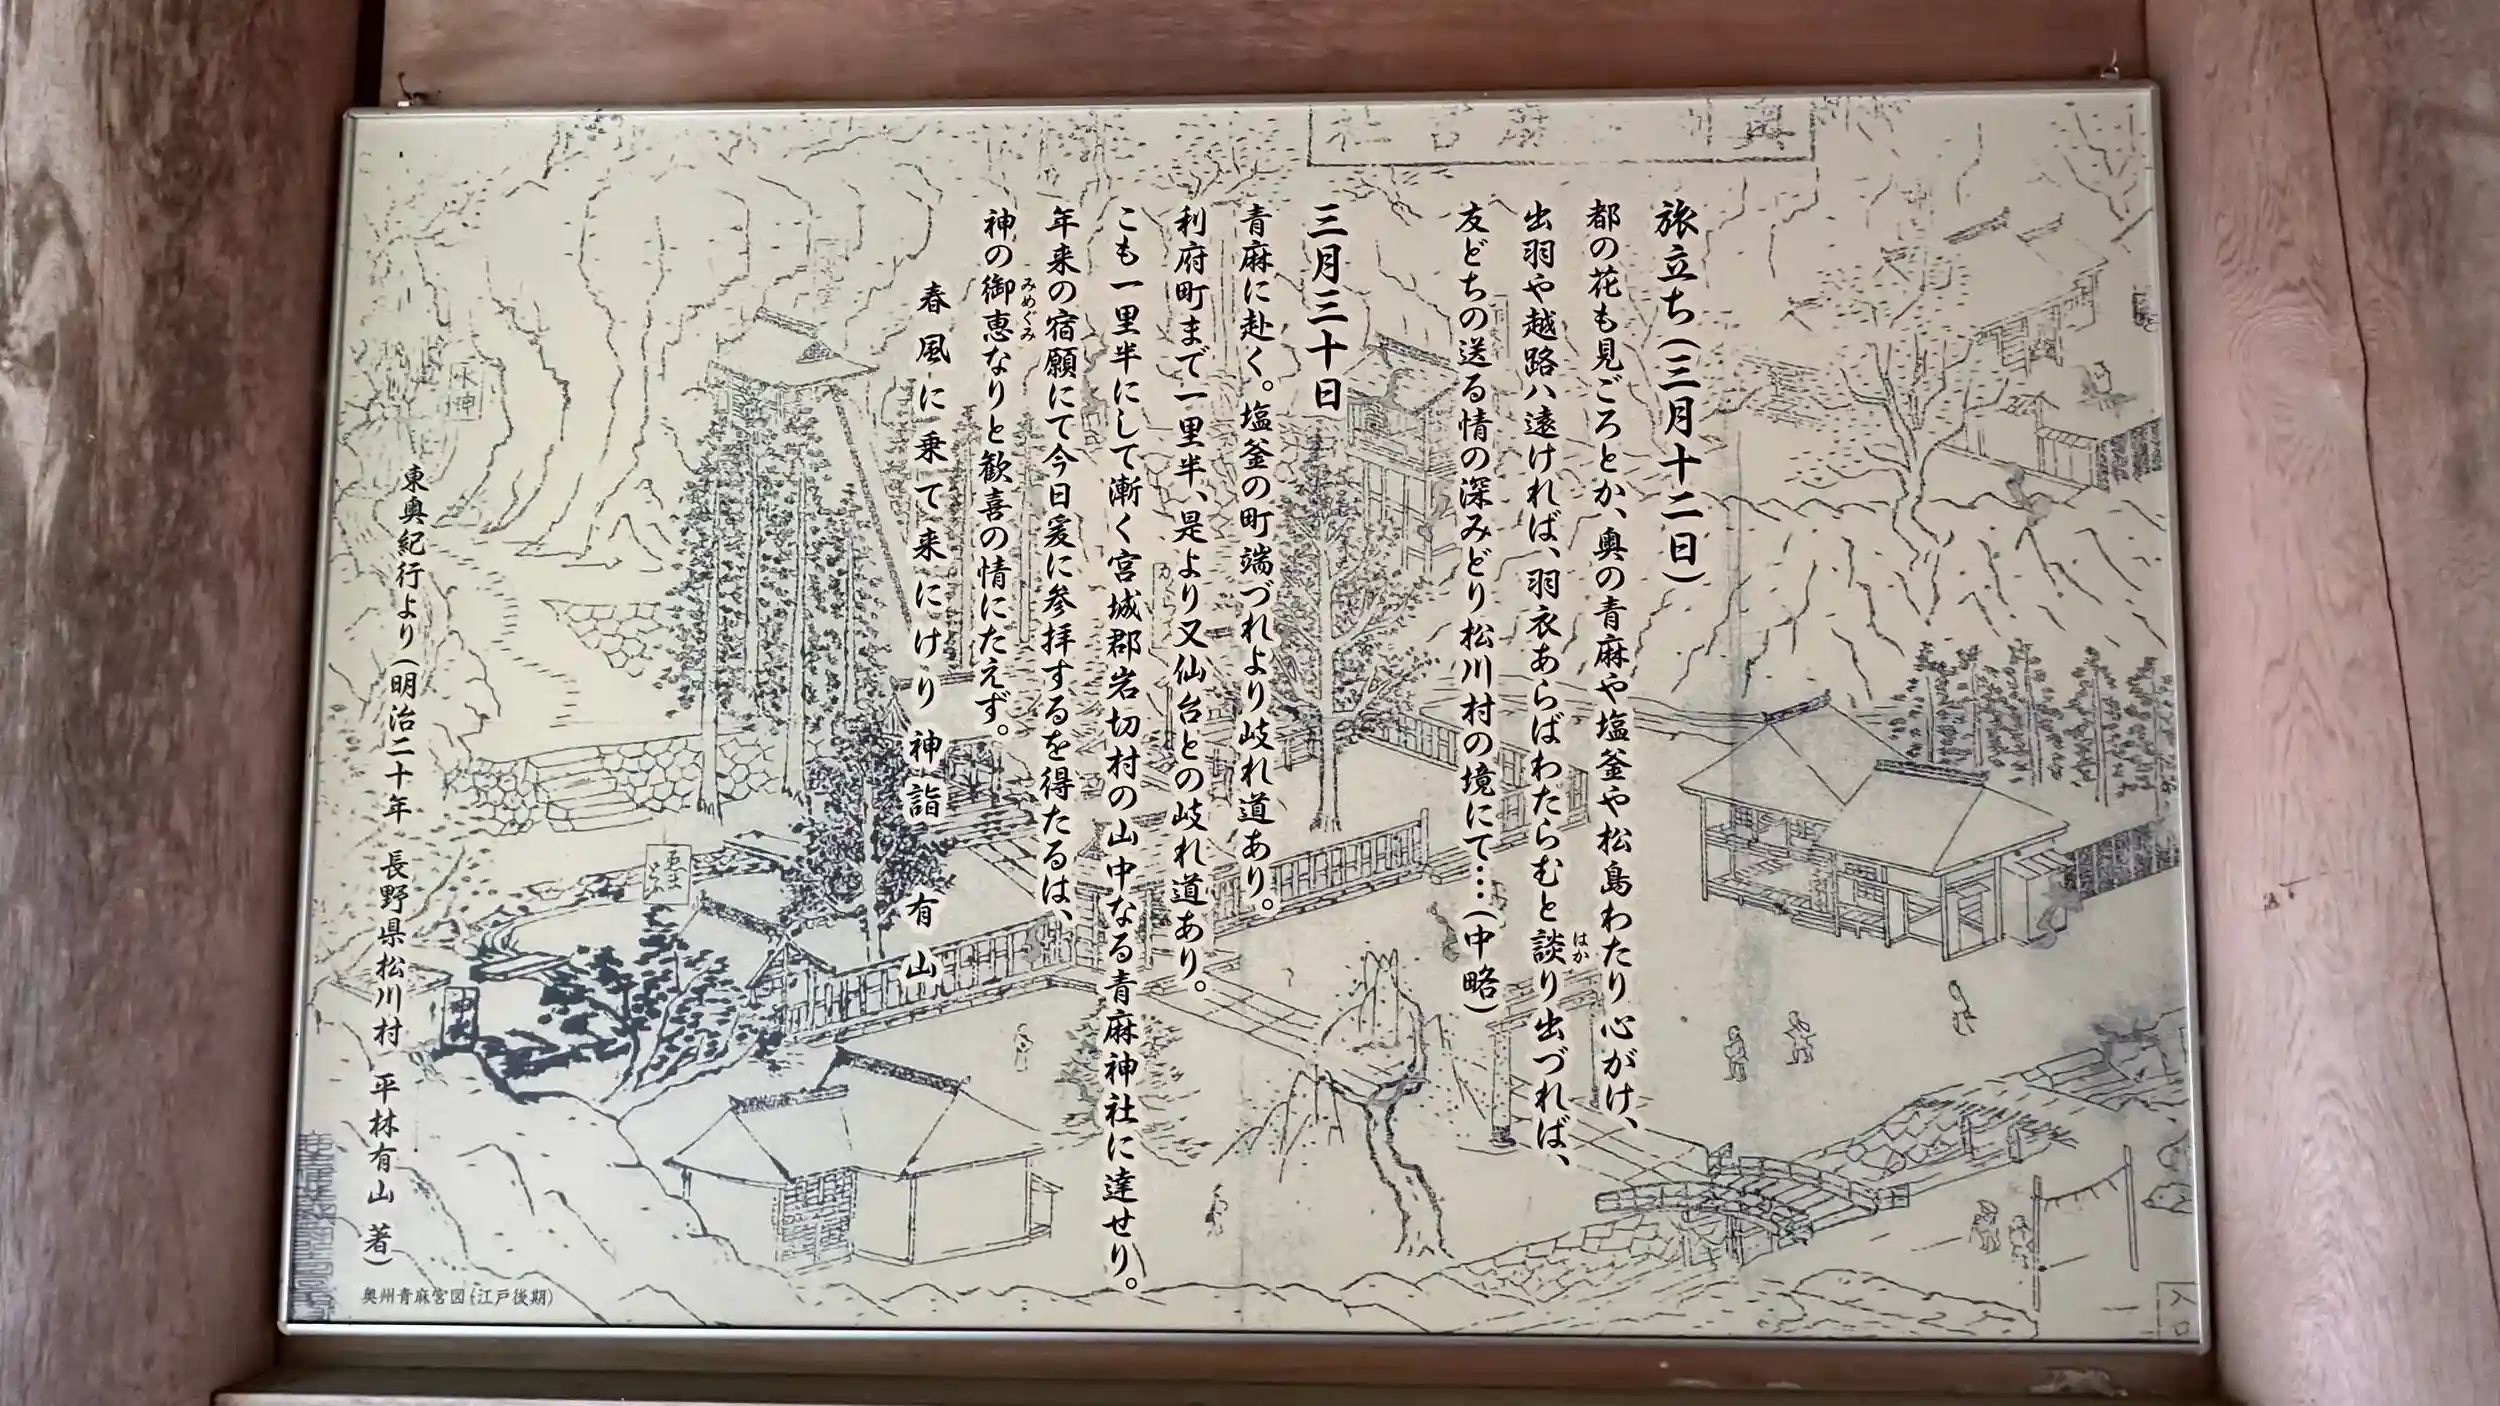 旅立ち(三月十二日)
都の花も見ごろとか、奥の青麻や塩釜や松島わたり心がけ、
出羽や越路ハ遠ければ、羽衣あらばわたらむと談り出づれば、
はか
友どちの送る情の深みどり松川村の境にて…(中略)
三月三十日
青麻に赴く。塩釜の町端づれより岐れ道あり。
利府町まで一里半、是より又仙台との岐れ道あり。
こも一里半にして漸く宮城郡岩切村の山中なる青麻神社に達せり。
年来の宿願にて今日爰に参拝するを得たるは、
神の御恵なりと歓喜の情にたえず。
みめぐみ
春風に乗て来にけり 神詣 有山
東奥紀行より(明治二十年 長野県松川村 平林有山 著)
奥州青麻宮図(江戸後期)
水神
入口